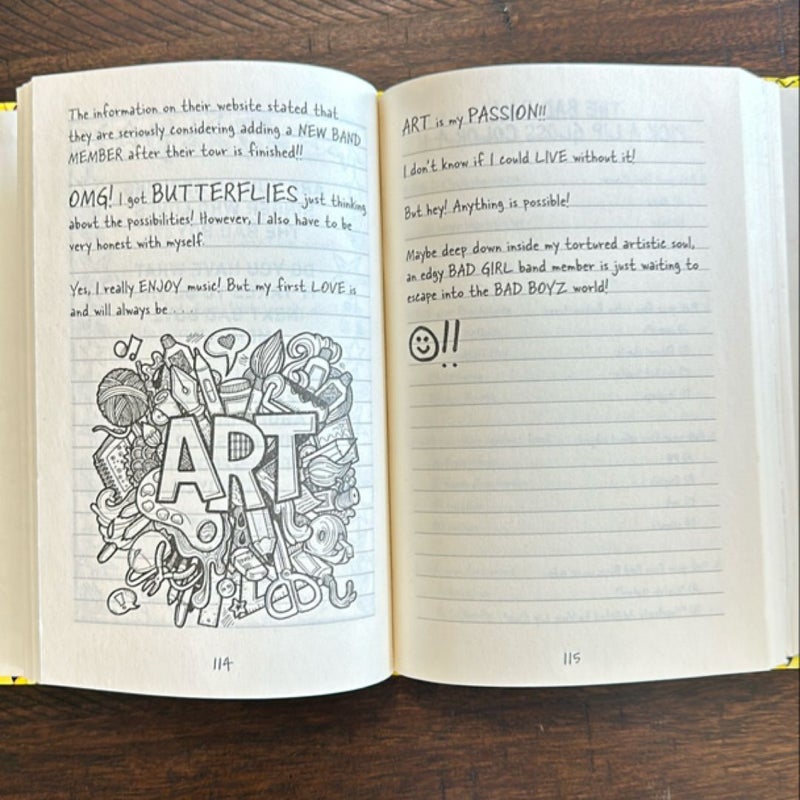 The information on their website stated that
they are seriously considering adding a NEW BAND
MEMBER after their tour is finished!!
OMG! I got BUTTERFLIES just thinking
about the possibilities! However, I also have to be
very honest with myself.
Yes, I really ENJOY music! But my first LOVE is
and will always be . . .
ART
114
ART is my PASSION!!
I don't know if I could LIVE without it!
But hey! Anything is possible!
Maybe deep down inside my tortured artistic soul,
an edgy BAD GIRL band member is just waiting to
escape into the BAD BOYZ world!
!!
115